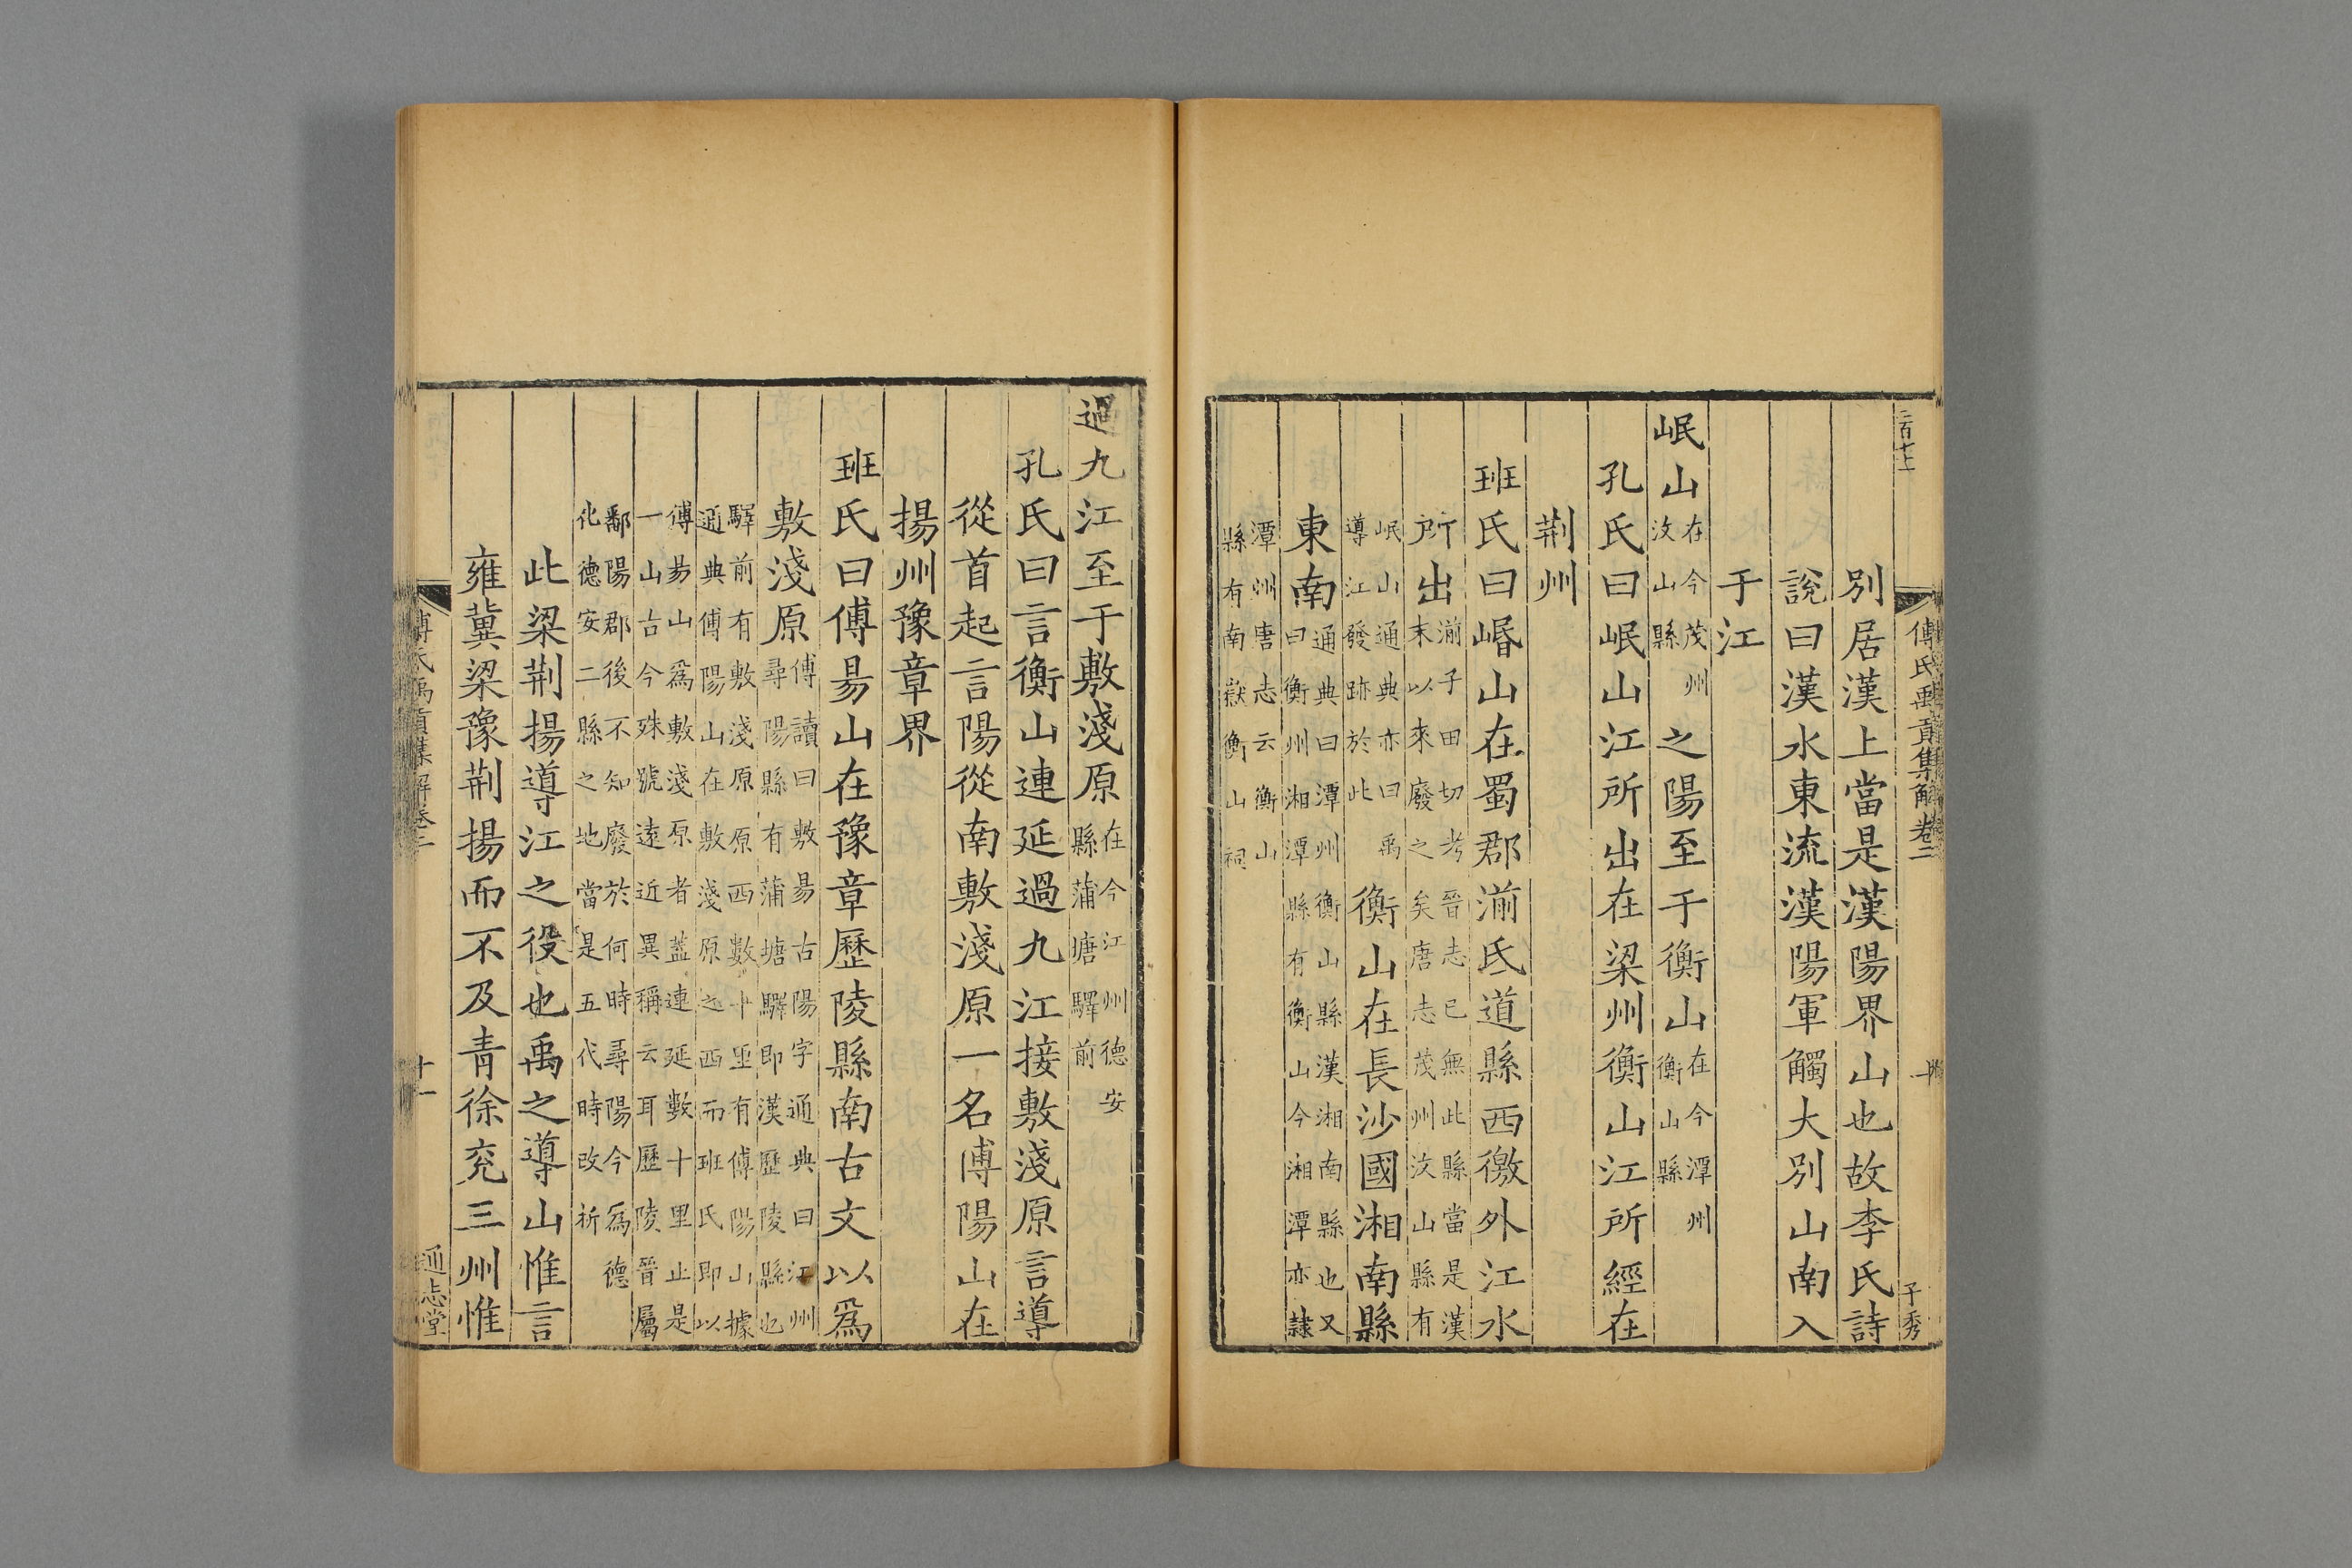 三百七十
傅氏禹貢集解卷二
十一
子秀
別居漢上當是漢陽界山也故李氏詩
說曰漢水東流漢陽軍觸大別山南入
于江
岷山在今茂州汶山縣之陽至于衡山在今潭州衡山縣
孔氏曰岷山江所出在梁州衡山江所經在
荆州
班氏曰㟭山在蜀郡湔氐道縣西徼外江水
所出湔子田切考晉志已無此縣當是漢末以來廢之矣唐志茂州汶山縣有
岷山通典亦曰禹導江發跡於此衡山在長沙國湘南縣
東南通典曰潭州衡山縣漢湘南縣也又曰衡州湘潭縣有衡山今湘潭亦隷
潭州唐志云衡山縣有南嶽衡山祠
過九江至于敷淺原在今江州德安縣蒲塘驛前
孔氏曰言衡山連延過九江接敷淺原言導
從首起言陽從南敷淺原一名博陽山在
揚州豫章界
班氏曰傅昜山在豫章歷陵縣南古文以爲
敷淺原傅讀曰敷昜古陽字通典曰江州尋陽縣有蒲塘驛即漢歷陵縣也
驛前有敷淺原原西數十里有傅陽山據通典傅陽山在敷淺原之西而班氏即以
傅昜山爲敷淺原者葢連延數十里止是一山古今殊號遠近異稱云耳歷陵晉屬
鄱陽郡後不知廢於何時尋陽今爲德化德安二縣之地當是五代時改析
此梁荆揚導江之役也禹之導山惟言
雍冀梁豫荆揚而不及青徐兖三州惟
傅氏禹貢集解卷二
十一
通志堂